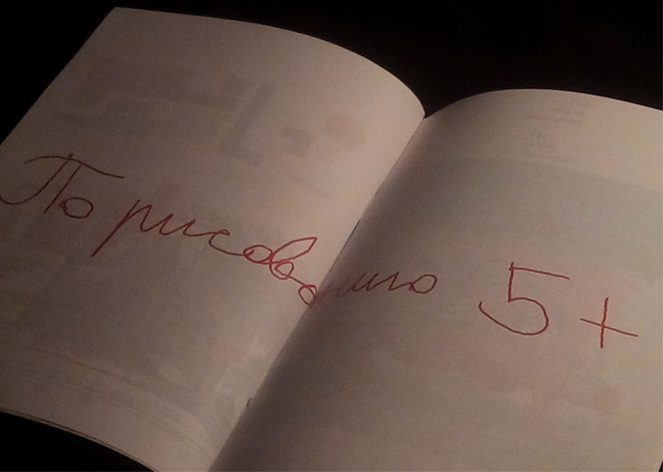 По рисованию 5+